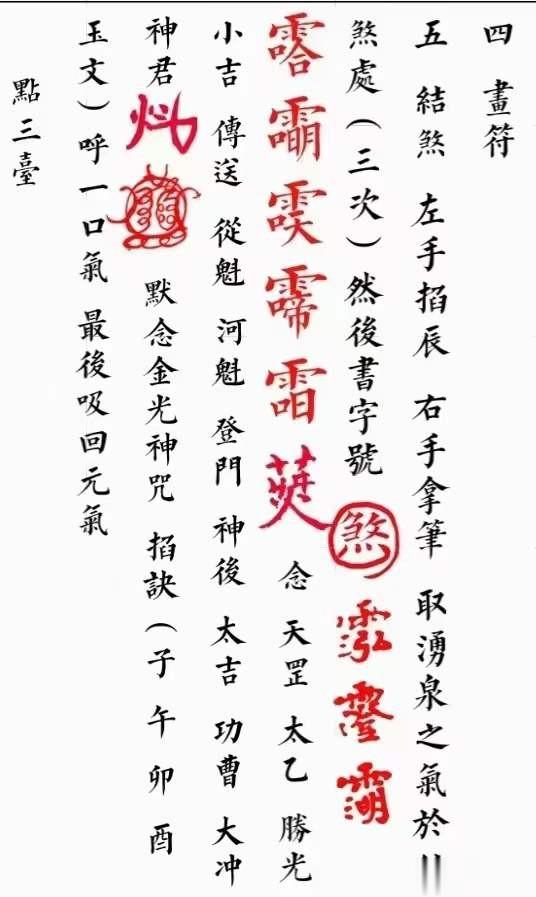 四 畫符
五 結煞 左手掐辰 右手拿筆 取湧泉之氣於
煞處（三次）然後書字號 煞
念 天罡 太乙 勝光
小吉 傳送 從魁 河魁 登門 神後 太吉 功曹 大冲
神君 默念金光神咒 掐訣（子 午 卯 酉
玉文）呼一口氣 最後吸回元氣
點三臺